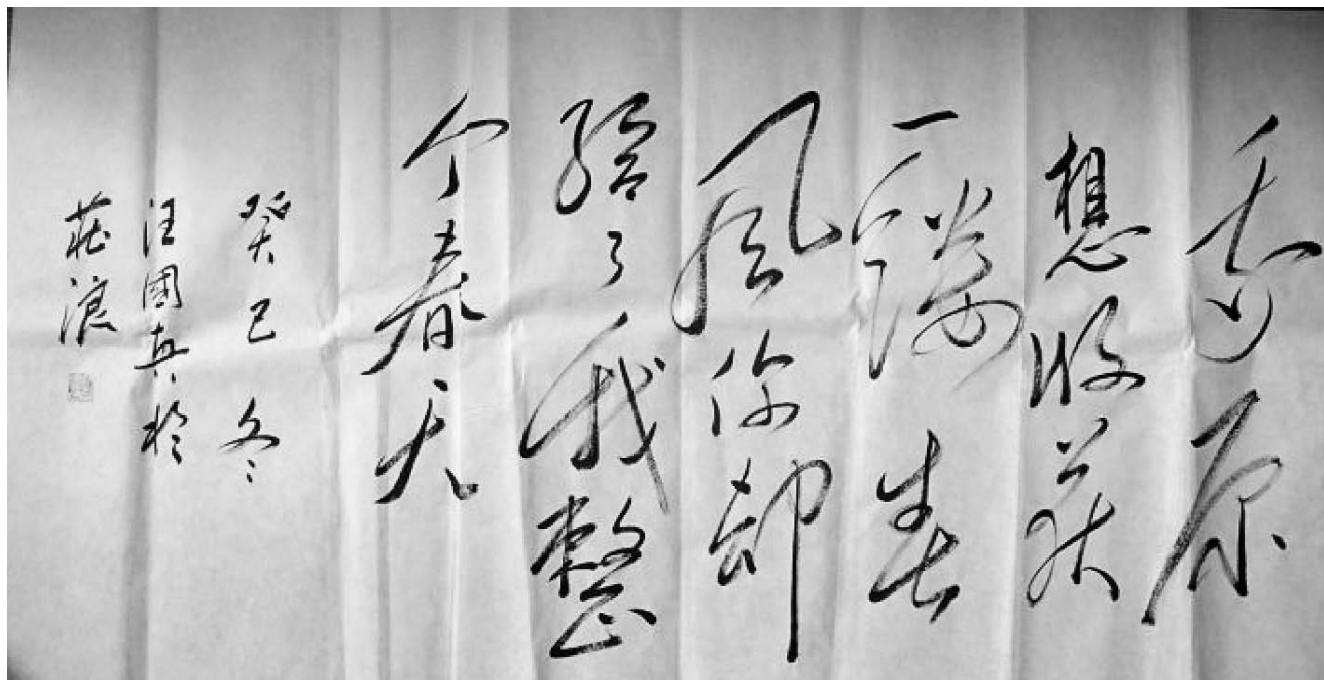 我原
想收获
一缕春
风你却
给了我整
个春天
癸巳冬
汪國真於
莊浪